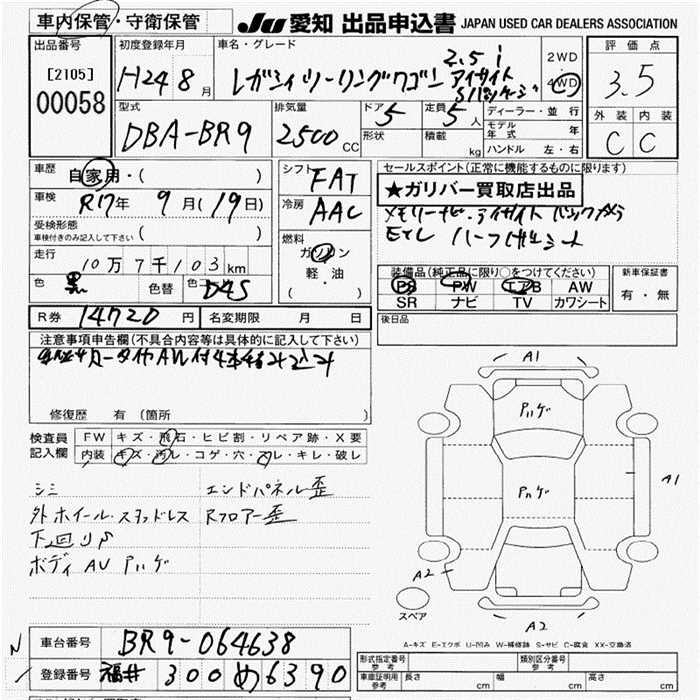 車内保管・守衛保管
JU 愛知 出品申込書 JAPAN USED CAR DEALERS ASSOCIATION
出品番号
[2105]
00058
初度登録年月
H24 8月
車名・グレード
2.5 i
レガシィツーリングワゴン アイサイト
Sパッケージ
2WD
4WD
評価点
3.5
外装 内装
C C
型式
DBA-BR9
排気量
2500 CC
ドア 5
形状
定員 5 人
積載 kg
ディーラー・並行
モデル年式 年
ハンドル 左・右
車歴 自家用・( )
車検 R17年 9月(19日)
受検形態
車検付きのみ記入して下さい ( )
走行 10万7千103km
色 黒 色替 色コ D4S
シフト FAT
冷房 AAC
燃料
ガソリン
軽・油
( )
セールスポイント(正常に機能するものに限ります)
★ガリバー買取店出品
メモリーナビ・アイサイト バックカメラ
ETC ハーフレザーシート
装備品(純正品に限り○をつけてください)
PS PW エアB AW
SR ナビ TV カワシート
新車保証書
有・無
後日品
R券 14720円
名変期限 月 日
注意事項申告欄(不具合内容等は具体的に記入して下さい)
修復歴 有 (箇所 )
検査員
記入欄
FW キズ・飛石・ヒビ割・リペア跡・X要
内装 キズ・汚レ・コゲ・穴・スレ・キレ・破レ
シミ エンドパネル歪
外ホイール・スタッドレス Rフロアー歪
下回りサ
ボディ AU アハゲ
A1
アハゲ
アハゲ
A1
A2
スペア
A2
A-キズ E-エクボ U-凹み W-補修跡 S-サビ C-腐食 XX-交換済
車台番号 BR9-064638
登録番号 福井 300 め 6390
形式指定番号
参考
類別区分番号
参考
車庫証明用
参考
長さ cm 幅 cm 高さ cm